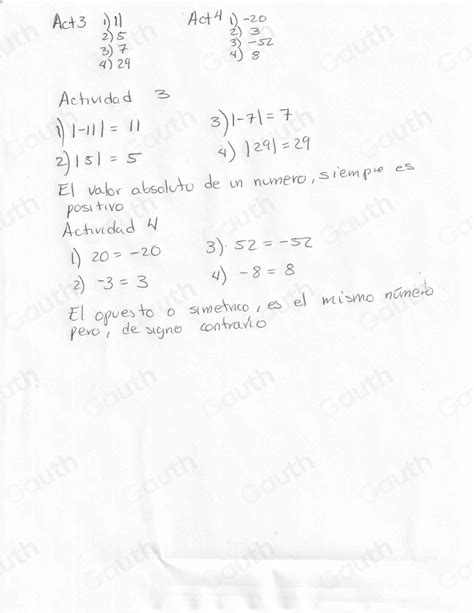 Act3 1) 11
2) 5
3) 7
4) 29
Act4 1) -20
2) 3
3) -52
4) 8
Actividad 3
1) |-11| = 11
2) |5| = 5
3) |-7| = 7
4) |29| = 29
El valor absoluto de un numero, siempre es
positivo
Actividad 4
1) 20 = -20
2) -3 = 3
3) 52 = -52
4) -8 = 8
El opuesto o simetrico, es el mismo número
pero, de signo contrario
Gauth